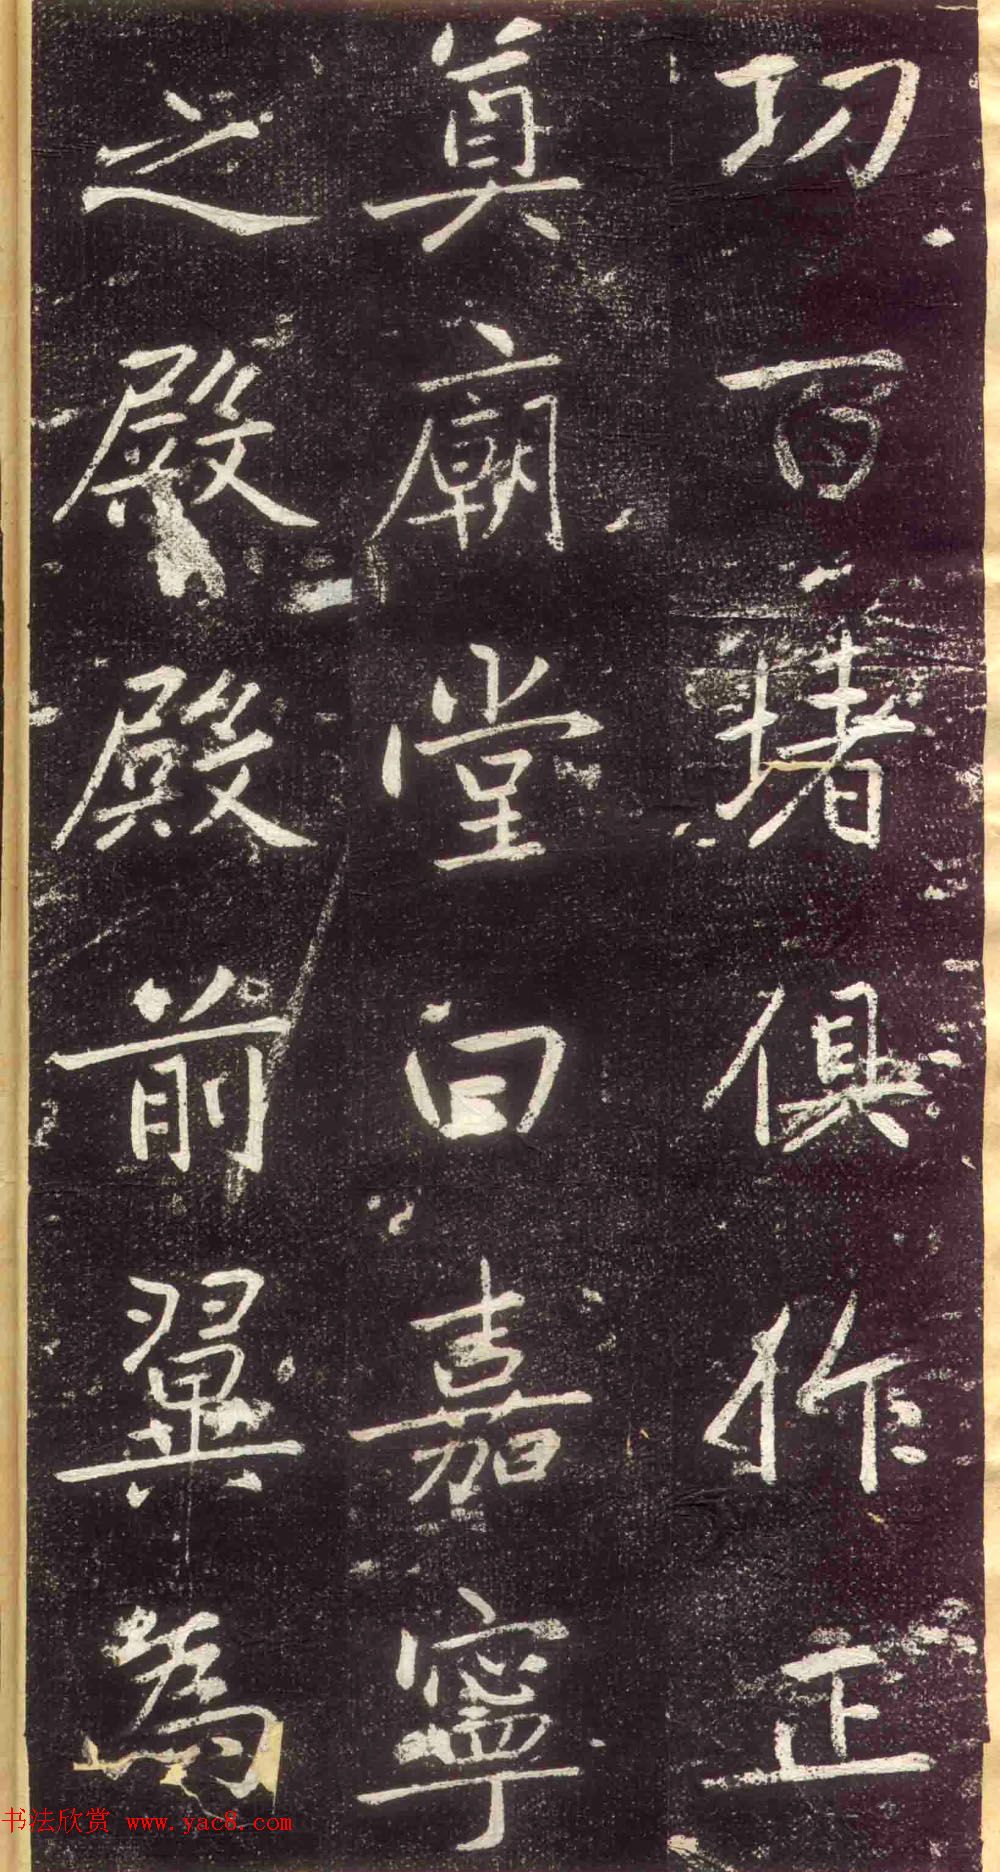 功百堵俱作正
真廟堂曰嘉寧
之殿殿前翼為
书法欣赏 www.yac8.com